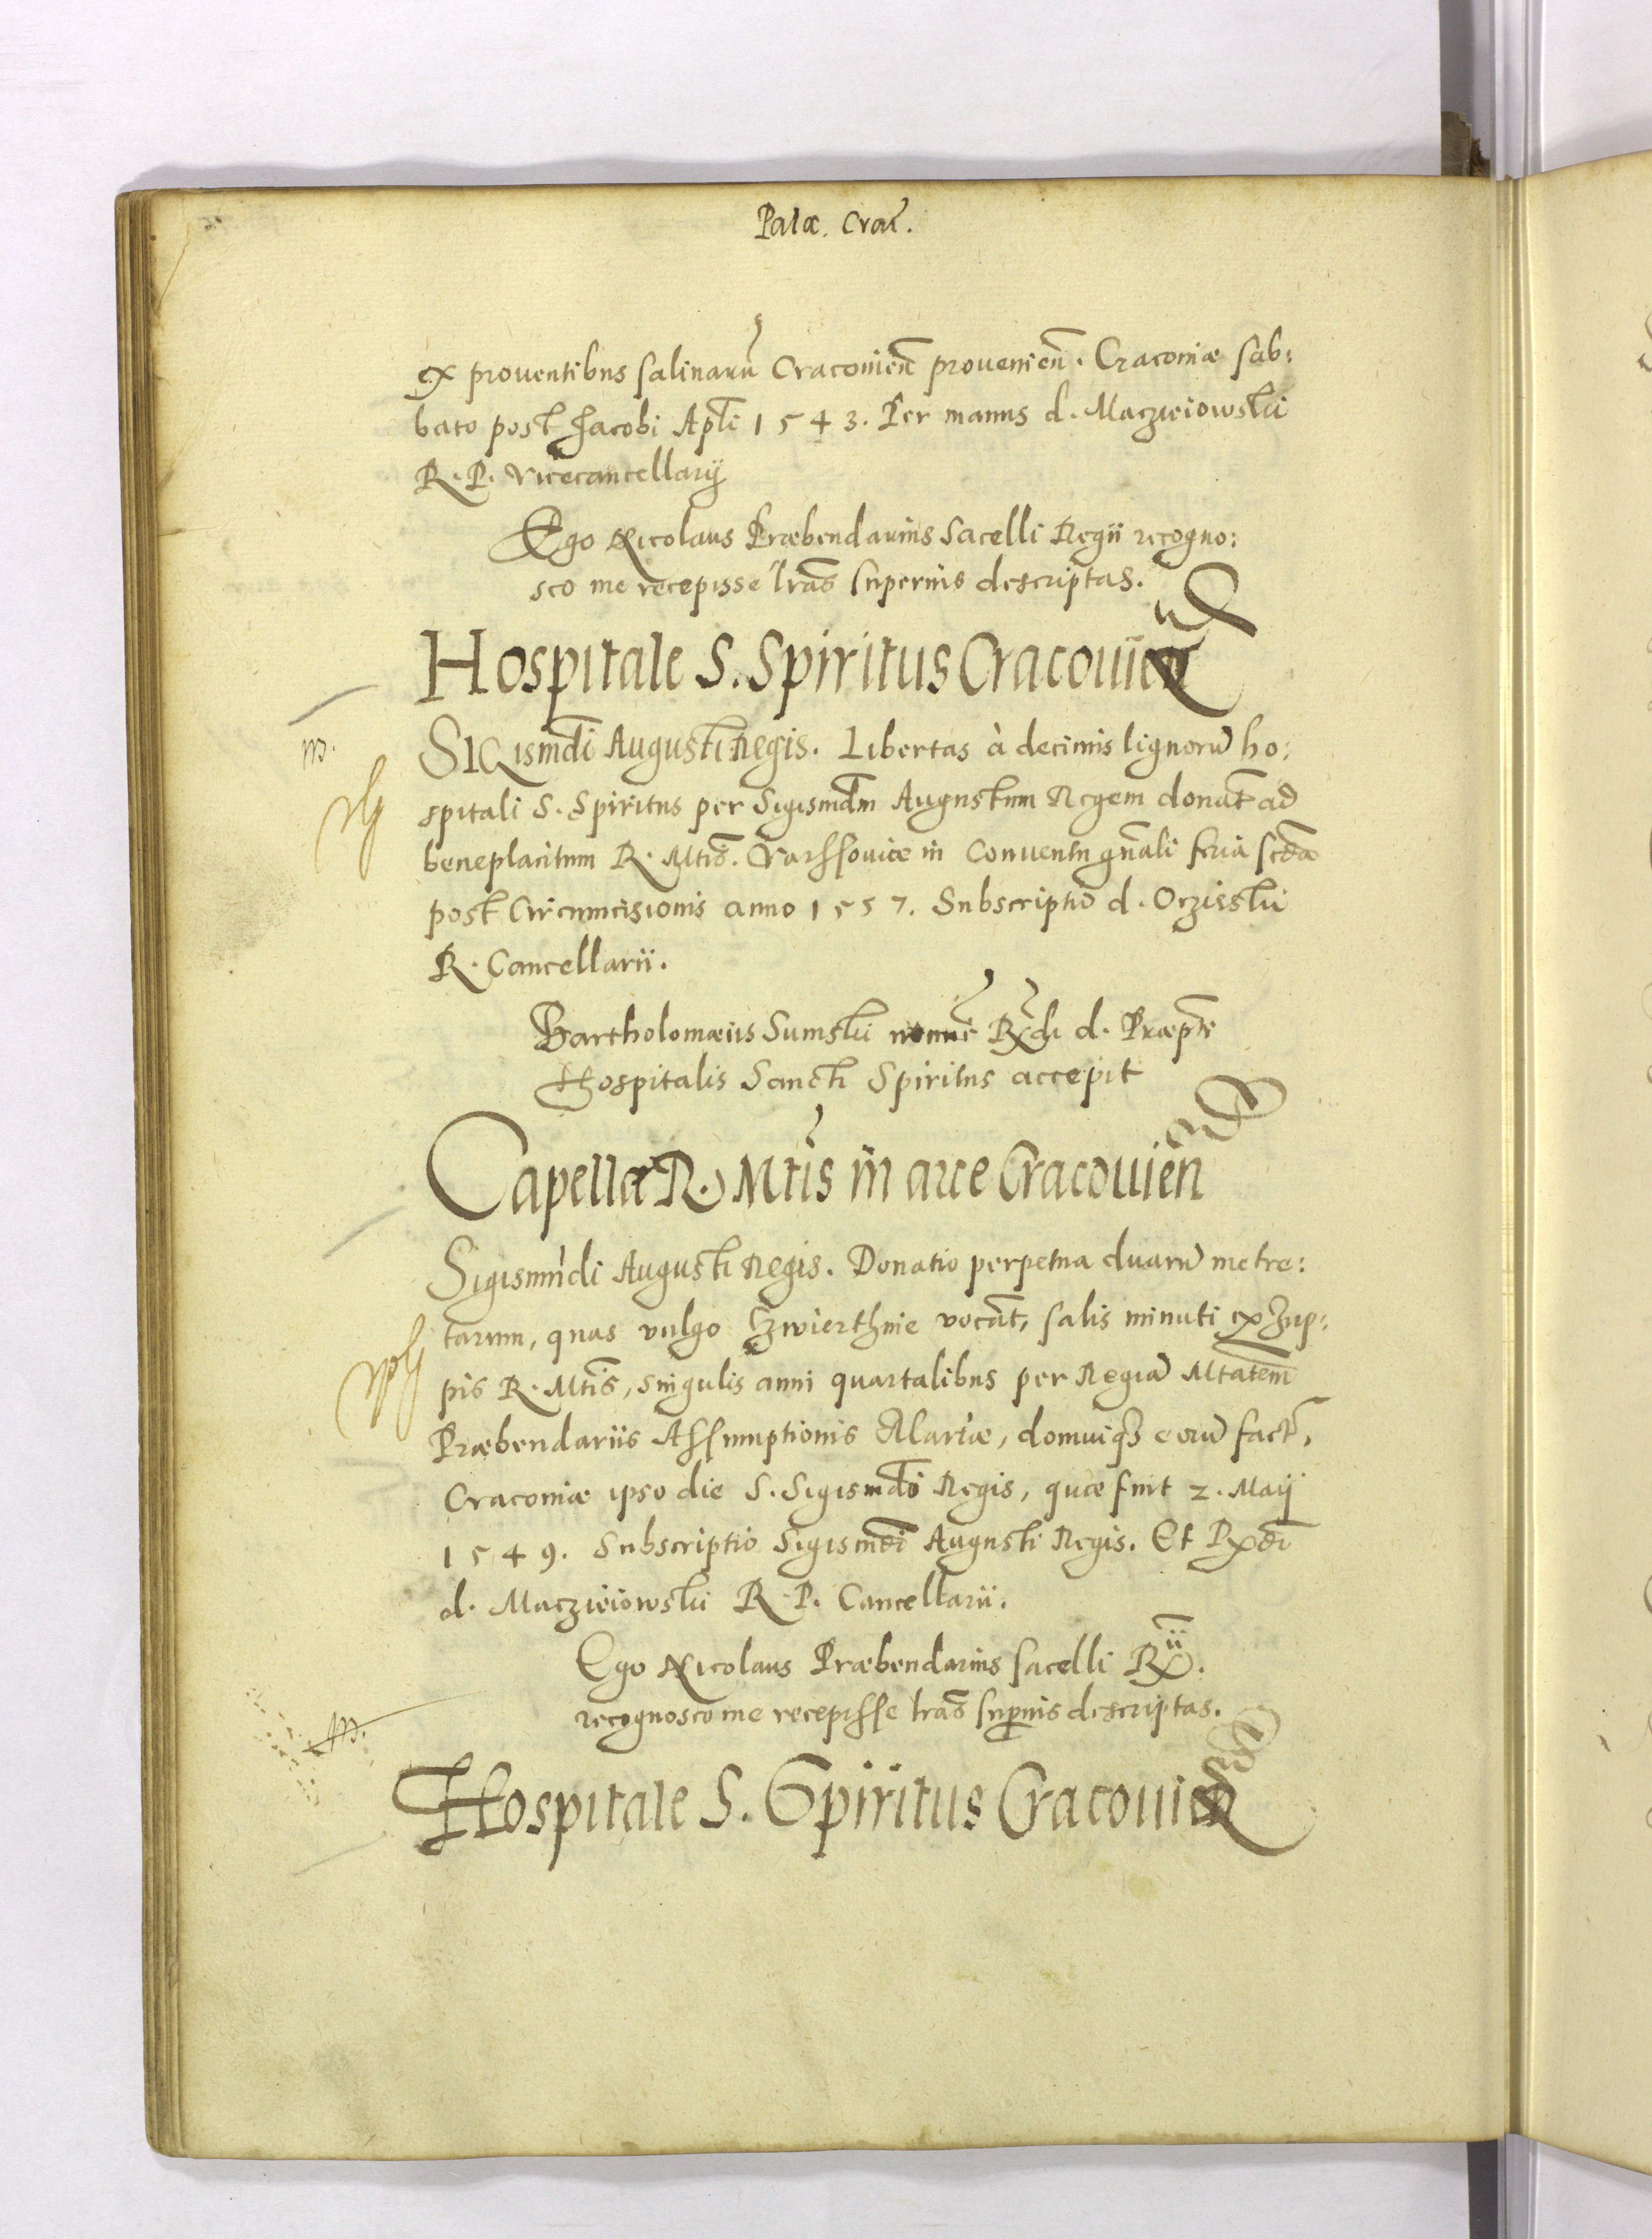 Palæ. Crac.
ex prouentibus salinarũ Cracouieñ prouenieñ. Cracouiæ sab:
bato post Jacobi Apłi 1543. Per manus d. Maczieiowskii
R. P. Vicecancellarij
Ego Nicolaus Præbendarius Sacelli Regii recogno:
sco me recepisse lras superius descriptas.
Hospitale S. Spiritus Cracouień
Sigismdi Augusti Regis. Libertas à decimis lignorũ ho:
spitali S. Spiritus per Sigismdm Augustum Regem donat ad
beneplacitum R. Mtis. Varssouiæ in Conuentu gnali feria scda
post Circumcisionis anno 1557. Subscriptio d. Oczieskii
R. Cancellarii.
Bartholomæus Sumskii nomine Rxdi d. Præpti
Hospitalis Sancti Spiritus accepit
Capellæ R. Mtis in arce Cracouień
Sigismũdi Augusti Regis. Donatio perpetua duarũ metre:
tarum, quas vulgo Czwierthnie vocãt, salis minuti ex Zup:
pis R. Mtis, singulis anni quartalibus per Regiã Mtatem
Præbendariis Assumptionis Mariæ, domuiqз eorũ fact,
Cracouiæ ipso die S. Sigismdi Regis, quæ fuit 2. Maij
1549. Subscriptio Sigismdi Augusti Regis. Et Rxdi
d. Maczieiowskii R. P. Cancellarii.
Ego Nicolaus Præbendarius sacelli Rxii.
recognosco me recepisse lras supius descriptas.
Hospitale S. Spiritus Cracouień